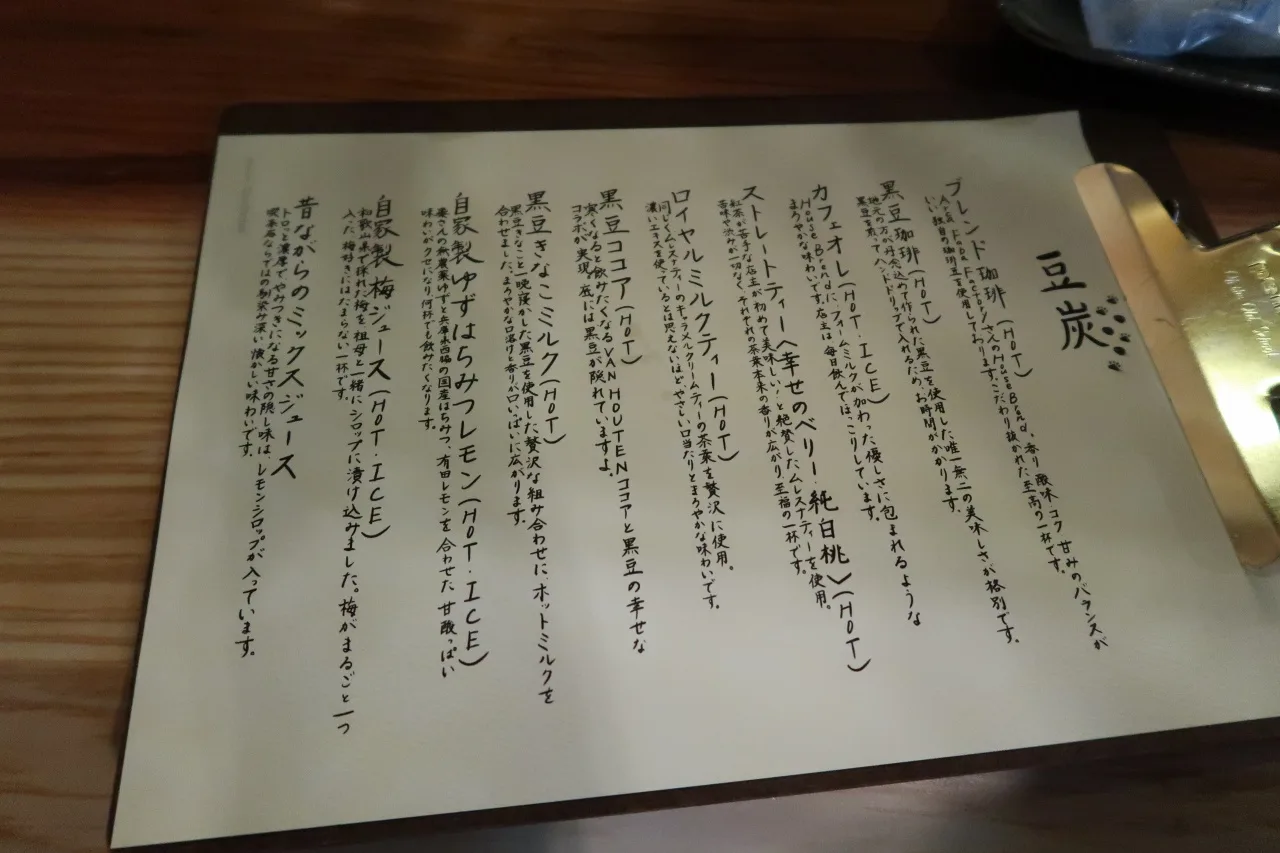 豆炭
ブレンド珈琲(HOT)
香り酸味コク甘みのバランスが
いい、独自の珈琲豆を使用しております。こだわり抜かれた至高の一杯です。
黒豆珈琲(HOT)
地元の方が丹念込めて作られた黒豆を使用した唯一無二の美味しさが格別です。
黒豆を煎って、ハンドドリップで入れるため、お時間がかかります。
カフェオレ(HOT・ICE)
House Brendに、フォームミルクが加わった優しさに包まれるような
まろやかな味わいです。店主は毎日飲んでほっこりしています。
ストレートティー〈幸せのベリー・純白桃〉(HOT)
紅茶が苦手な店主が初めて美味しい!と絶賛したムレスナティーを使用。
苦味や渋みが一切なく、それぞれの茶葉本来の香りが広がり至福の一杯です。
ロイヤルミルクティー(HOT)
同じくムレスナティーのキャラメルクリームティーの茶葉を贅沢に使用。
濃いエキスを使っているとは思えないほど、やさしい口当たりとまろやかな味わいです。
黒豆ココア(HOT)
寒くなると飲みたくなるVAN HOUTENココアと黒豆の幸せな
コラボが実現。底には黒豆が隠れていますよ。
黒豆きなこミルク(HOT)
黒豆きなこと一晩寝かした黒豆を使用した贅沢な組み合わせに、ホットミルクを
合わせました。まろやかな口溶けと香りが口いっぱいに広がります。
自家製ゆずはちみつレモン(HOT・ICE)
奏さんの無農薬ゆずと兵庫永西脇の国産はちみつ、有田レモンを合わせた甘酸っぱい
味わいがクセになり何杯でも飲みたくなります。
自家製梅ジュース(HOT・ICE)
和歌山県で採れた梅を祖母と一緒にシロップに漬け込みました。梅がまるごと一つ
入った、梅好きにはたまらない一杯です。
昔ながらのミックスジュース
トロッと濃厚でやみつきになる甘さの隠し味は、レモンシロップが入っています。
喫茶店ならではの馴染み深い懐かしい味わいです。